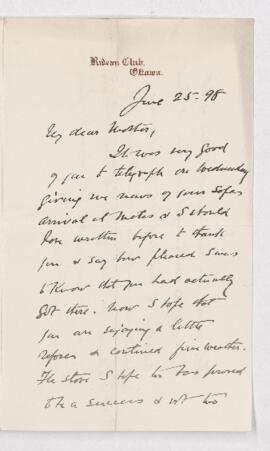 Rideau Club,
Ottawa.
June 25-98
My dear Mother,
It was very good
of you to telegraph on Wednesday
giving me news of your safe
arrival at Metis & I should
have written before to thank
you & say how pleased I was
to know that you had actually
got there. Now I hope that
you are enjoying a little
repose & continued fine weather.
The stove I hope too has proved
to be a success & not too